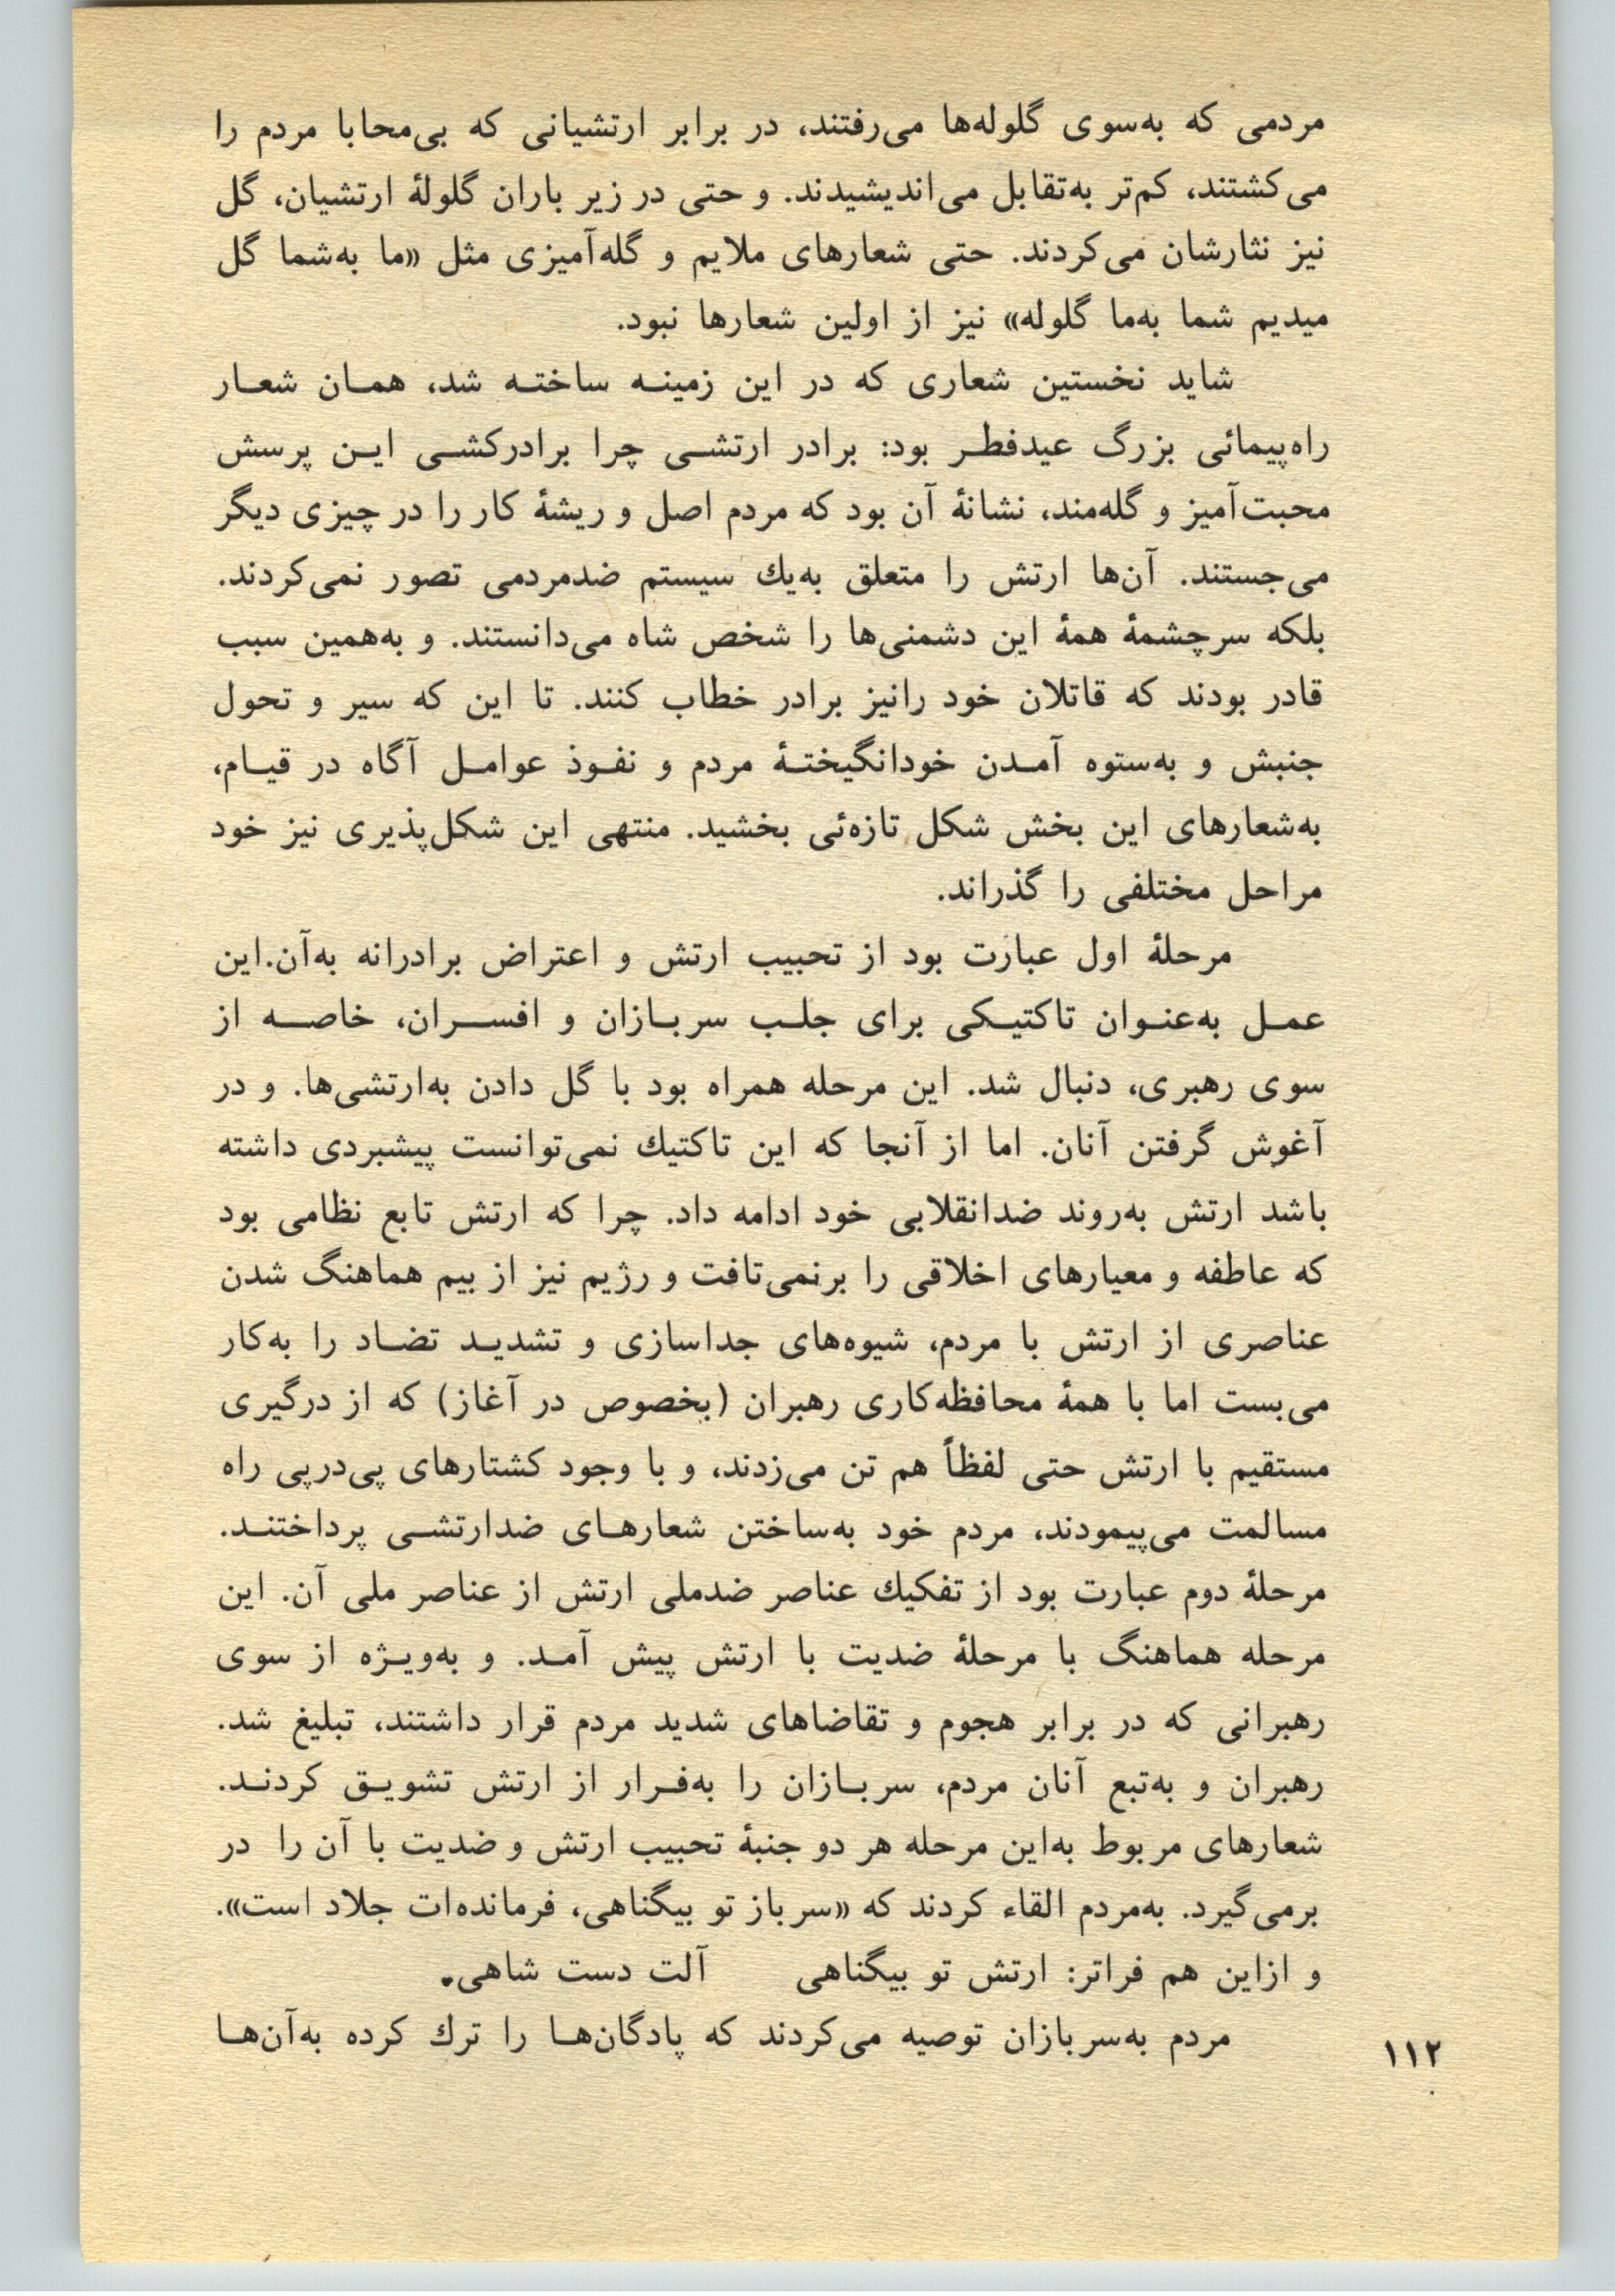 مردمی که به‌سوی گلوله‌ها می‌رفتند، در برابر ارتشیانی که بی‌محابا مردم را
می‌کشتند، کم‌تر به‌تقابل می‌اندیشیدند. و حتی در زیر باران گلولهٔ ارتشیان، گل
نیز نثارشان می‌کردند. حتی شعارهای ملایم و گله‌آمیزی مثل «ما به‌شما گل
میدیم شما به‌ما گلوله» نیز از اولین شعارها نبود.
شاید نخستین شعاری که در این زمینه ساخته شد، همان شعار
راه‌پیمائی بزرگ عیدفطر بود: برادر ارتشی چرا برادرکشی این پرسش
محبت‌آمیز و گله‌مند، نشانهٔ آن بود که مردم اصل و ریشهٔ کار را در چیزی دیگر
می‌جستند. آن‌ها ارتش را متعلق به‌یك سیستم ضدمردمی تصور نمی‌کردند.
بلکه سرچشمهٔ همهٔ این دشمنی‌ها را شخص شاه می‌دانستند. و به‌همین سبب
قادر بودند که قاتلان خود رانیز برادر خطاب کنند. تا این که سیر و تحول
جنبش و به‌ستوه آمدن خودانگیختهٔ مردم و نفوذ عوامل آگاه در قیام،
به‌شعارهای این بخش شکل تازه‌ئی بخشید. منتهی این شکل‌پذیری نیز خود
مراحل مختلفی را گذراند.
مرحلهٔ اول عبارت بود از تحبیب ارتش و اعتراض برادرانه به‌آن.این
عمل به‌عنوان تاکتیکی برای جلب سربازان و افسران، خاصه از
سوی رهبری، دنبال شد. این مرحله همراه بود با گل دادن به‌ارتشی‌ها. و در
آغوش گرفتن آنان. اما از آنجا که این تاکتیك نمی‌توانست پیشبردی داشته
باشد ارتش به‌روند ضدانقلابی خود ادامه داد. چرا که ارتش تابع نظامی بود
که عاطفه و معیارهای اخلاقی را برنمی‌تافت و رژیم نیز از بیم هماهنگ شدن
عناصری از ارتش با مردم، شیوه‌های جداسازی و تشدید تضاد را به‌کار
می‌بست اما با همهٔ محافظه‌کاری رهبران (بخصوص در آغاز) که از درگیری
مستقیم با ارتش حتی لفظاً هم تن می‌زدند، و با وجود کشتارهای پی‌درپی راه
مسالمت می‌پیمودند، مردم خود به‌ساختن شعارهای ضدارتشی پرداختند.
مرحلهٔ دوم عبارت بود از تفکیك عناصر ضدملی ارتش از عناصر ملی آن. این
مرحله هماهنگ با مرحلهٔ ضدیت با ارتش پیش آمد. و به‌ویژه از سوی
رهبرانی که در برابر هجوم و تقاضاهای شدید مردم قرار داشتند، تبلیغ شد.
رهبران و به‌تبع آنان مردم، سربازان را به‌فرار از ارتش تشویق کردند.
شعارهای مربوط به‌این مرحله هر دو جنبهٔ تحبیب ارتش و ضدیت با آن را در
برمی‌گیرد. به‌مردم القاء کردند که «سرباز تو بیگناهی، فرمانده‌ات جلاد است».
و ازاین هم فراتر: ارتش تو بیگناهی آلت دست شاهی.
مردم به‌سربازان توصیه می‌کردند که پادگان‌ها را ترك کرده به‌آن‌ها
۱۱۲